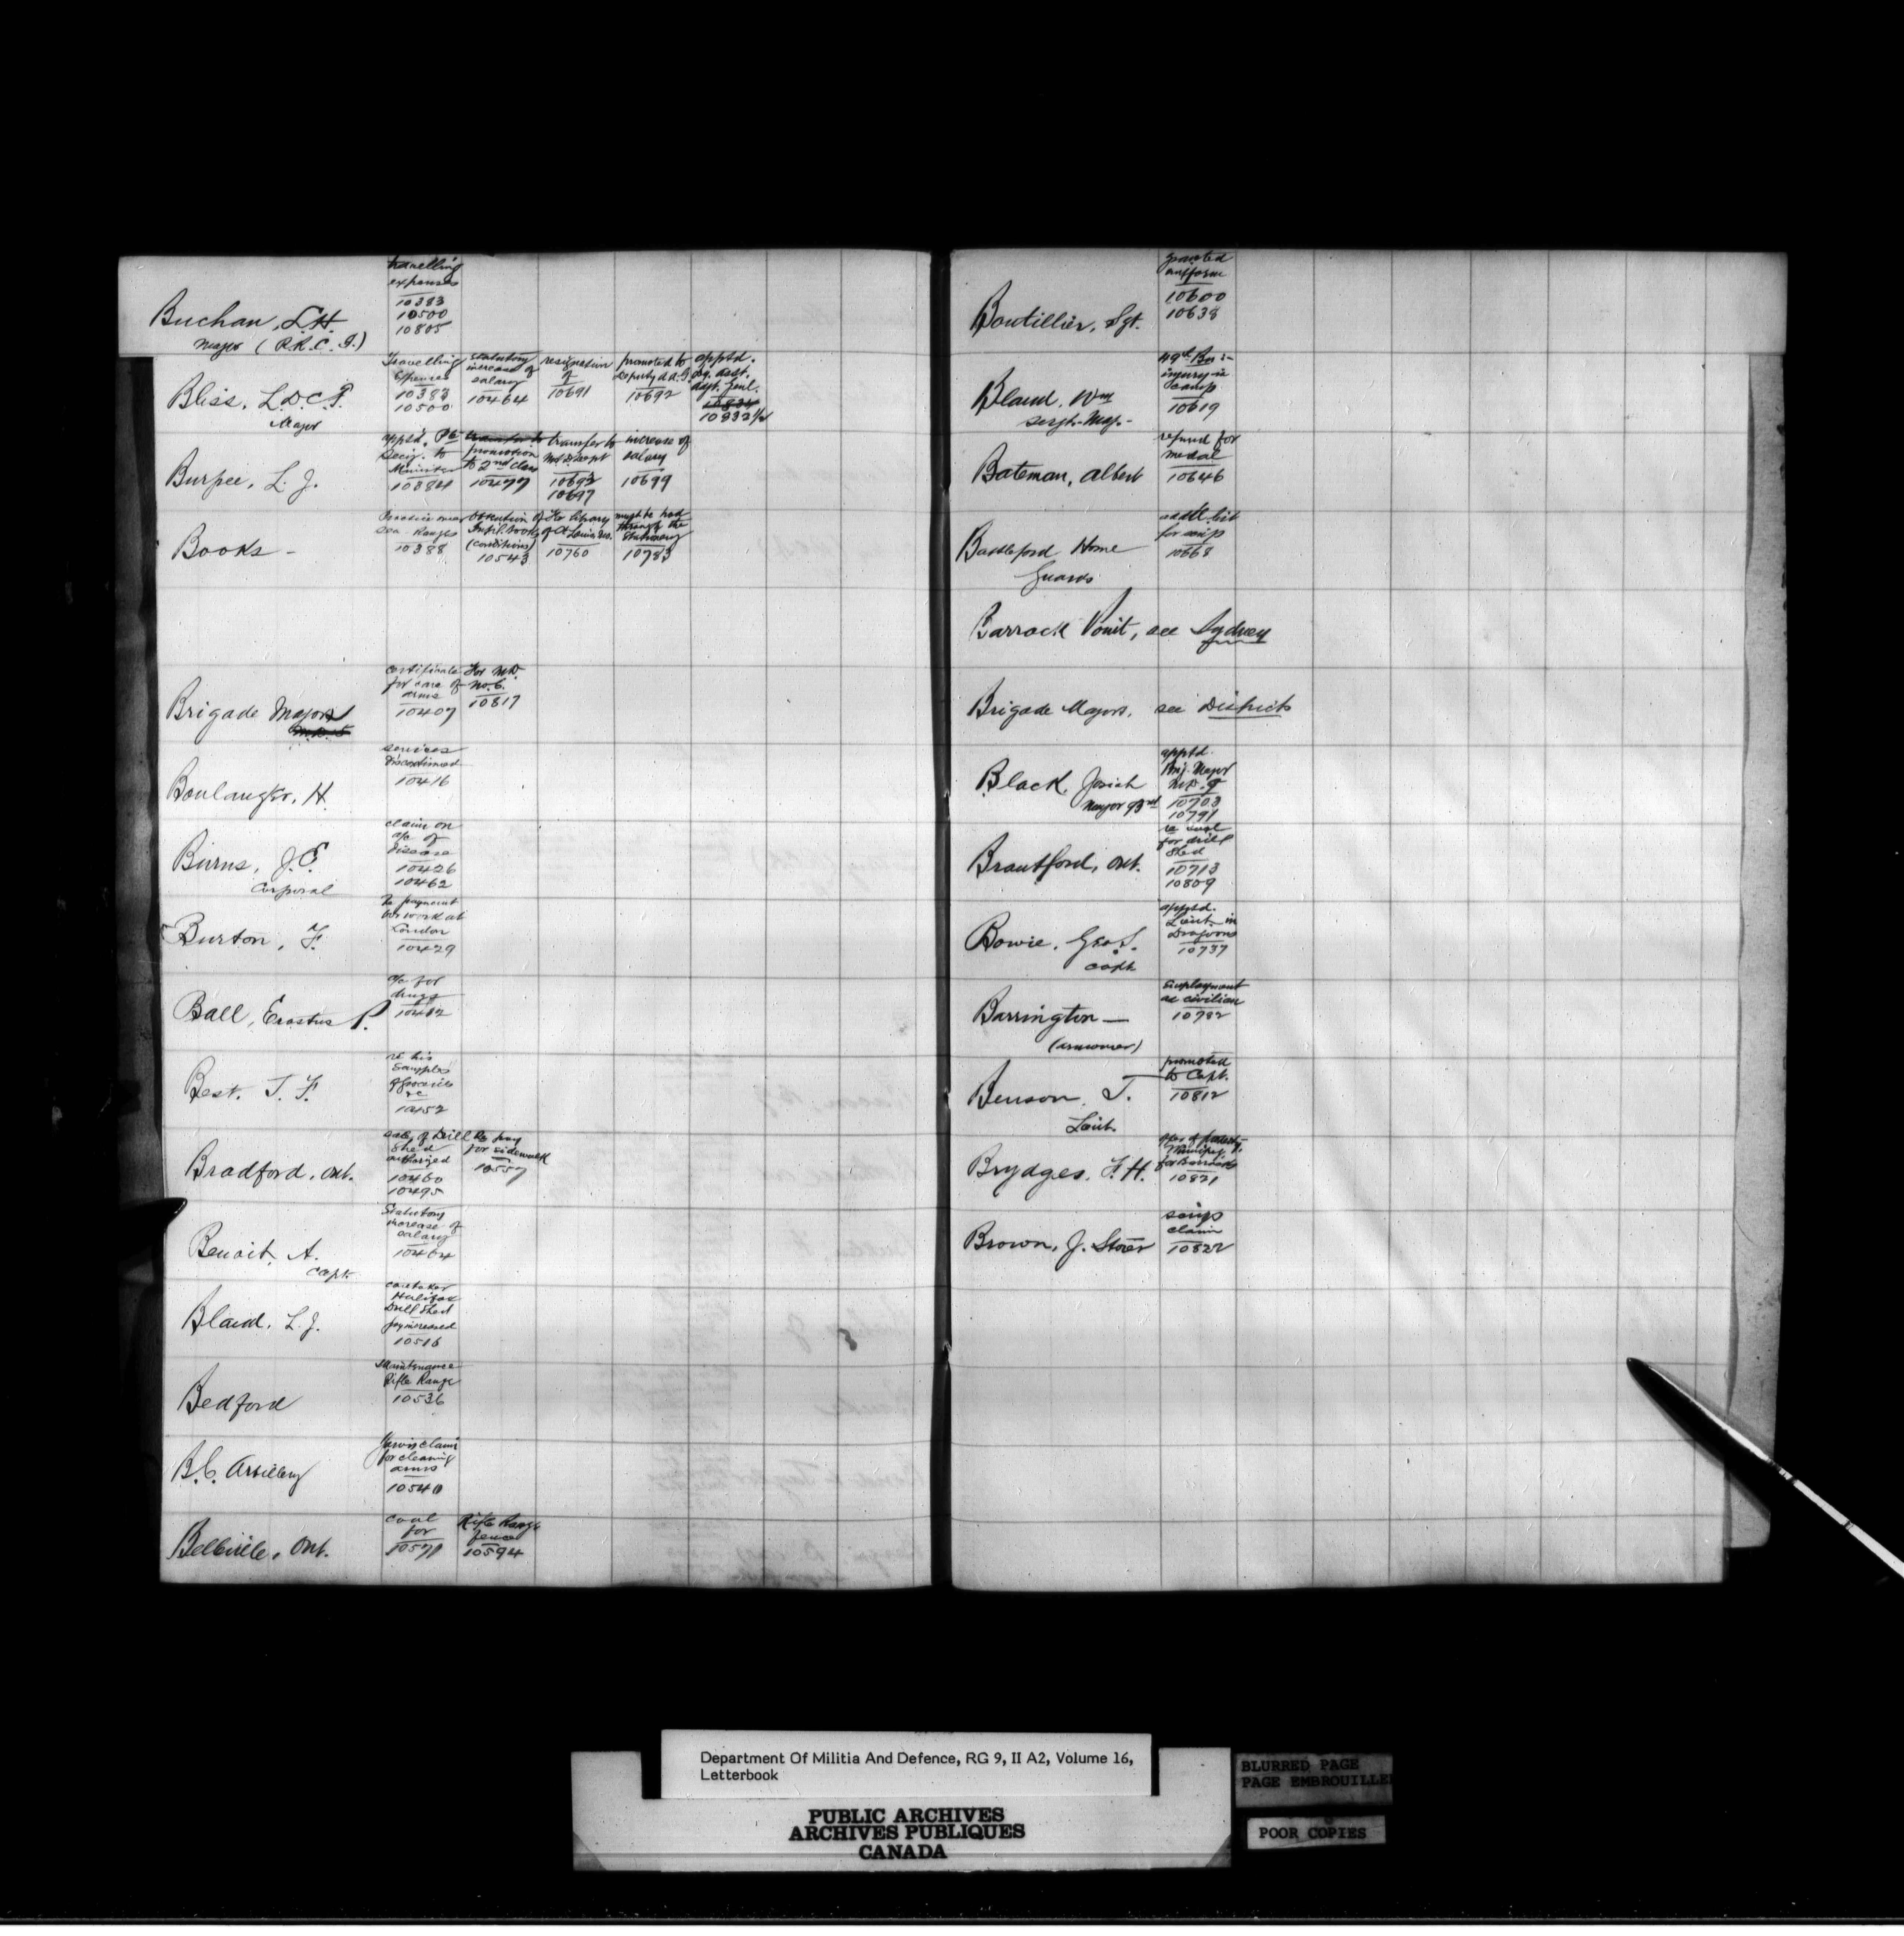 Buchan, L.H.
Major (R.R.C.I.)
travelling
expenses
10383
10500
10805
Bliss, L.D.C.F.
Major
Travelling
Expenses
10383
10500
statutory
increase of
salary
10464
resignation
of
10691
promoted to
Deputy A.A.G.
10692
apptd.
dy. asst.
adjt. genl.
10832½
Burpee, L. J.
apptd. Pte
Secy. to
Minister
10384
transfer to
promotion
to 2nd class
10477
transfer to
10693
10697
increase of
salary
10699
Books -
10388
of
(conditions)
10543
for library
10760
must be had
through the
Stationery
10783
Brigade Majors
certificate
for care of
arms
10407
For M.D.
No. 6.
10817
Boulanger, H.
services
discontinued
10416
Burns, J.E.
Corporal
claim on
a/c of
disease
10426
10462
Burton, F.
payment
for work at
London
10429
Ball, Erastus P.
a/c for
drugs
Best. T. F.
re his
samples
&c
10452
Bradford, Ont.
sale of Drill
Shed
authorized
10460
10495
Re pay
for sidewalk
10557
Benoit, A.
Capt.
Statutory
increase of
salary
10464
Bland, L. J.
caretaker
Halifax
Drill Shed
pay increased
10516
Bedford
Maintenance
Rifle Range
10536
B.C. Artillery
claim
for cleaning
arms
10540
Belleville, Ont.
coal
for
10571
Rifle Range
fence
10594
Boutillier, Sgt.
granted
uniform
10600
10638
Bland, Wm
Sergt.-Maj.-
49th Bn :-
injury in
camp
10619
Bateman, Albert
refund for
medal
10646
Battleford Home
Guards
addtl. list
for scrip
10668
Barrack Point, see Sydney
Brigade Majors, see Districts
Black, Josiah
Major 93rd
apptd.
Brig. Major
M.D. 9
10703
10791
Brantford, Ont.
re
for drill
shed
10713
10809
Bowie, Geo. S.
Capt
apptd.
Lieut. in
Dragoons
10737
Barrington —
(armourer)
Employment
as civilian
10782
Benson, T.
Lieut.
promoted
to Capt.
10812
Brydges, F. H.
offer of property
Winnipeg,
for Barracks
10821
Brown, J. Storer
scrip
claim
10822
Department Of Militia And Defence, RG 9, II A2, Volume 16,
Letterbook
PUBLIC ARCHIVES
ARCHIVES PUBLIQUES
CANADA
BLURRED PAGE
PAGE EMBROUILLE
POOR COPIES